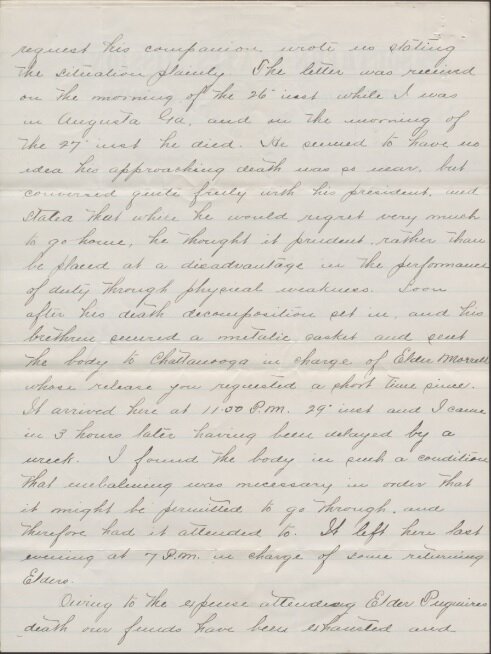 request his companion wrote us stating
the situation plainly. The letter was received
on the morning of the 26" inst while I was
in Augusta Ga, and on the morning of
the 27" inst he died. He seemed to have no
idea his approaching death was so near, but
conversed quite freely with his president, and
stated that while he would regret very much
to go home, he thought it prudent, rather than
be placed at a disadvantage in the performance
of duty through physical weakness. Soon
after his death decomposition set in, and his
brethren secured a metalic casket and sent
the body to Chattanooga in charge of Elder Morrell
whose release you requested a short time since.
It arrived here at 11:00 P.M. 29" inst and I came
in 3 hours later having been delayed by a
wreck. I found the body in such a condition
that imbalming was necessary in order that
it might be permitted to go through, and
therefore had it attended to. It left here last
evening at 7 P.M. in charge of some returning
Elders.
Owing to the expense attending Elder Pugmires
death our funds have been exhausted and